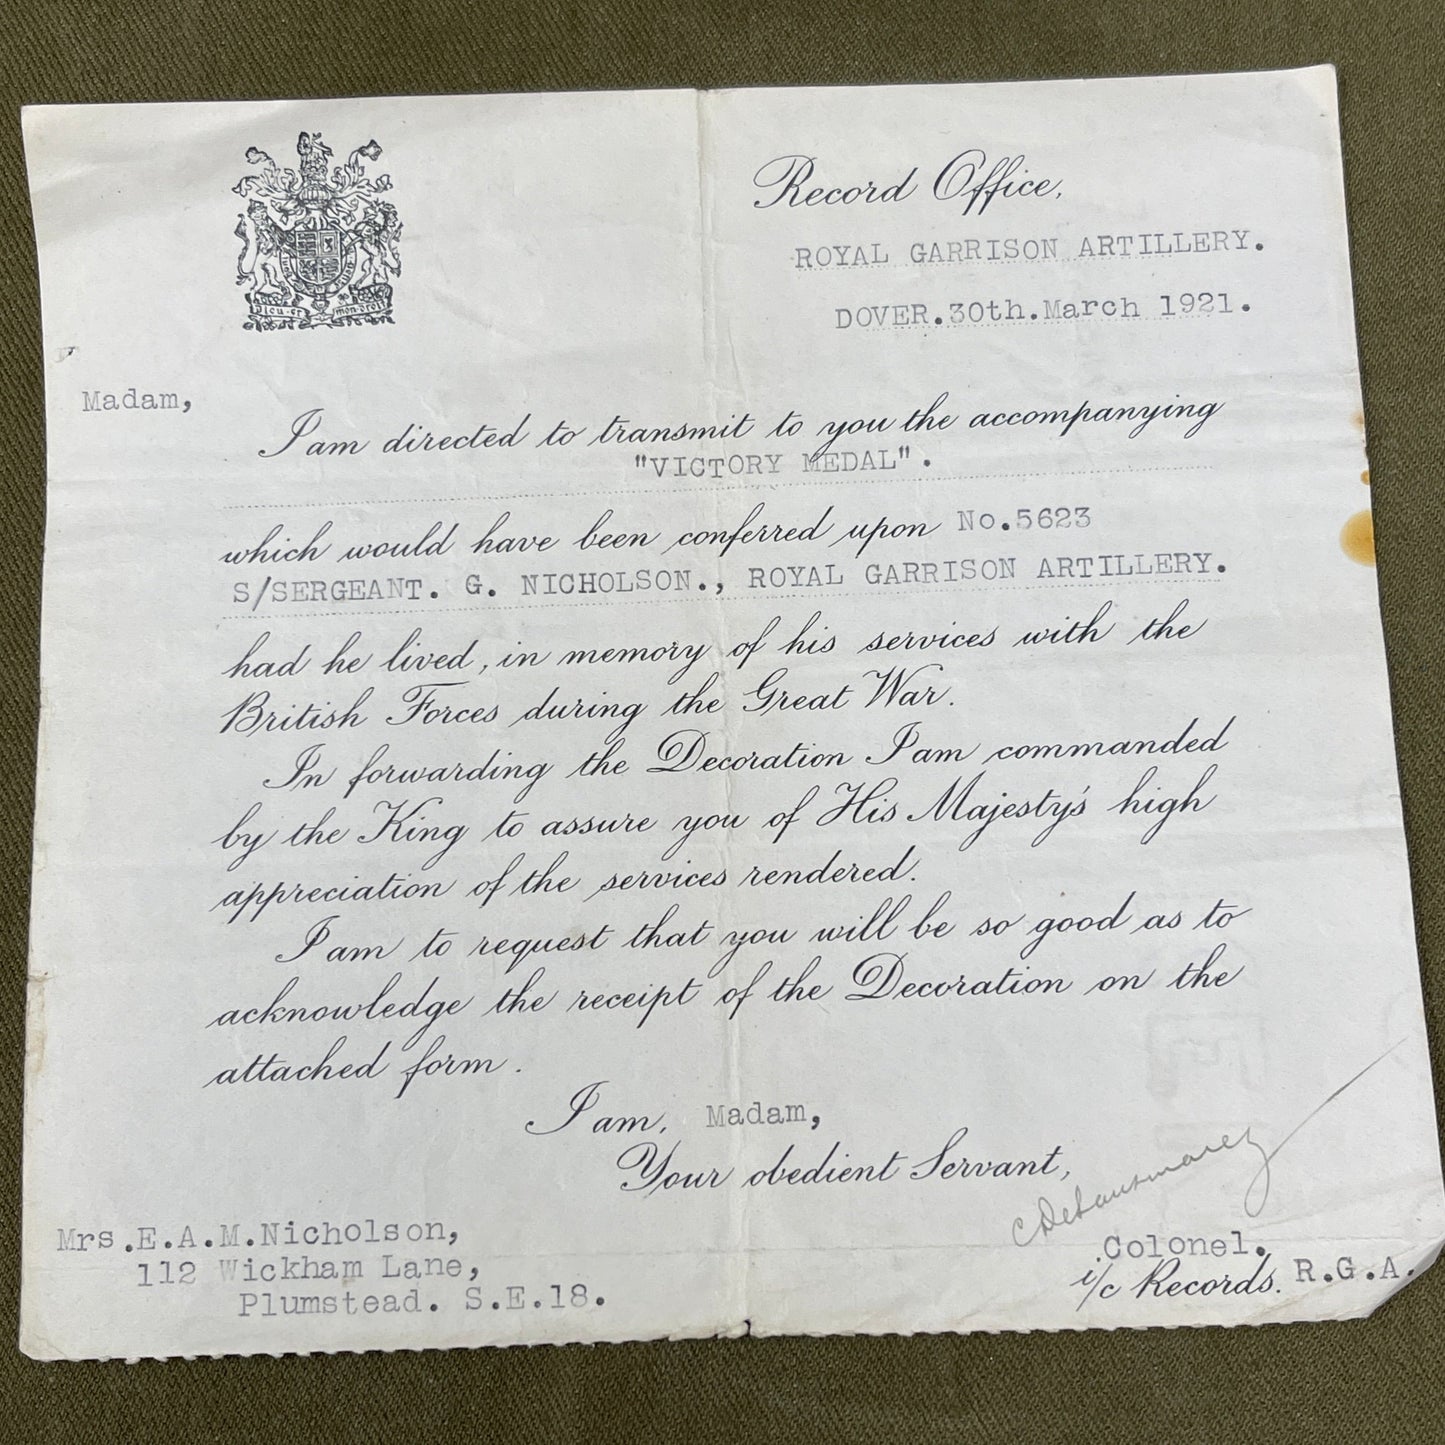 Dieu et mon droit
Record Office,
ROYAL GARRISON ARTILLERY.
DOVER.30th.March 1921.
Madam,
I am directed to transmit to you the accompanying
"VICTORY MEDAL".
which would have been conferred upon No.5623
S/SERGEANT. G. NICHOLSON., ROYAL GARRISON ARTILLERY.
had he lived, in memory of his services with the
British Forces during the Great War.
In forwarding the Decoration I am commanded
by the King to assure you of His Majesty's high
appreciation of the services rendered.
I am to request that you will be so good as to
acknowledge the receipt of the Decoration on the
attached form.
I am, Madam,
Your obedient Servant,
Colonel.
i/c Records. R.G.A.
Mrs.E.A.M.Nicholson,
112 Wickham Lane,
Plumstead. S.E.18.